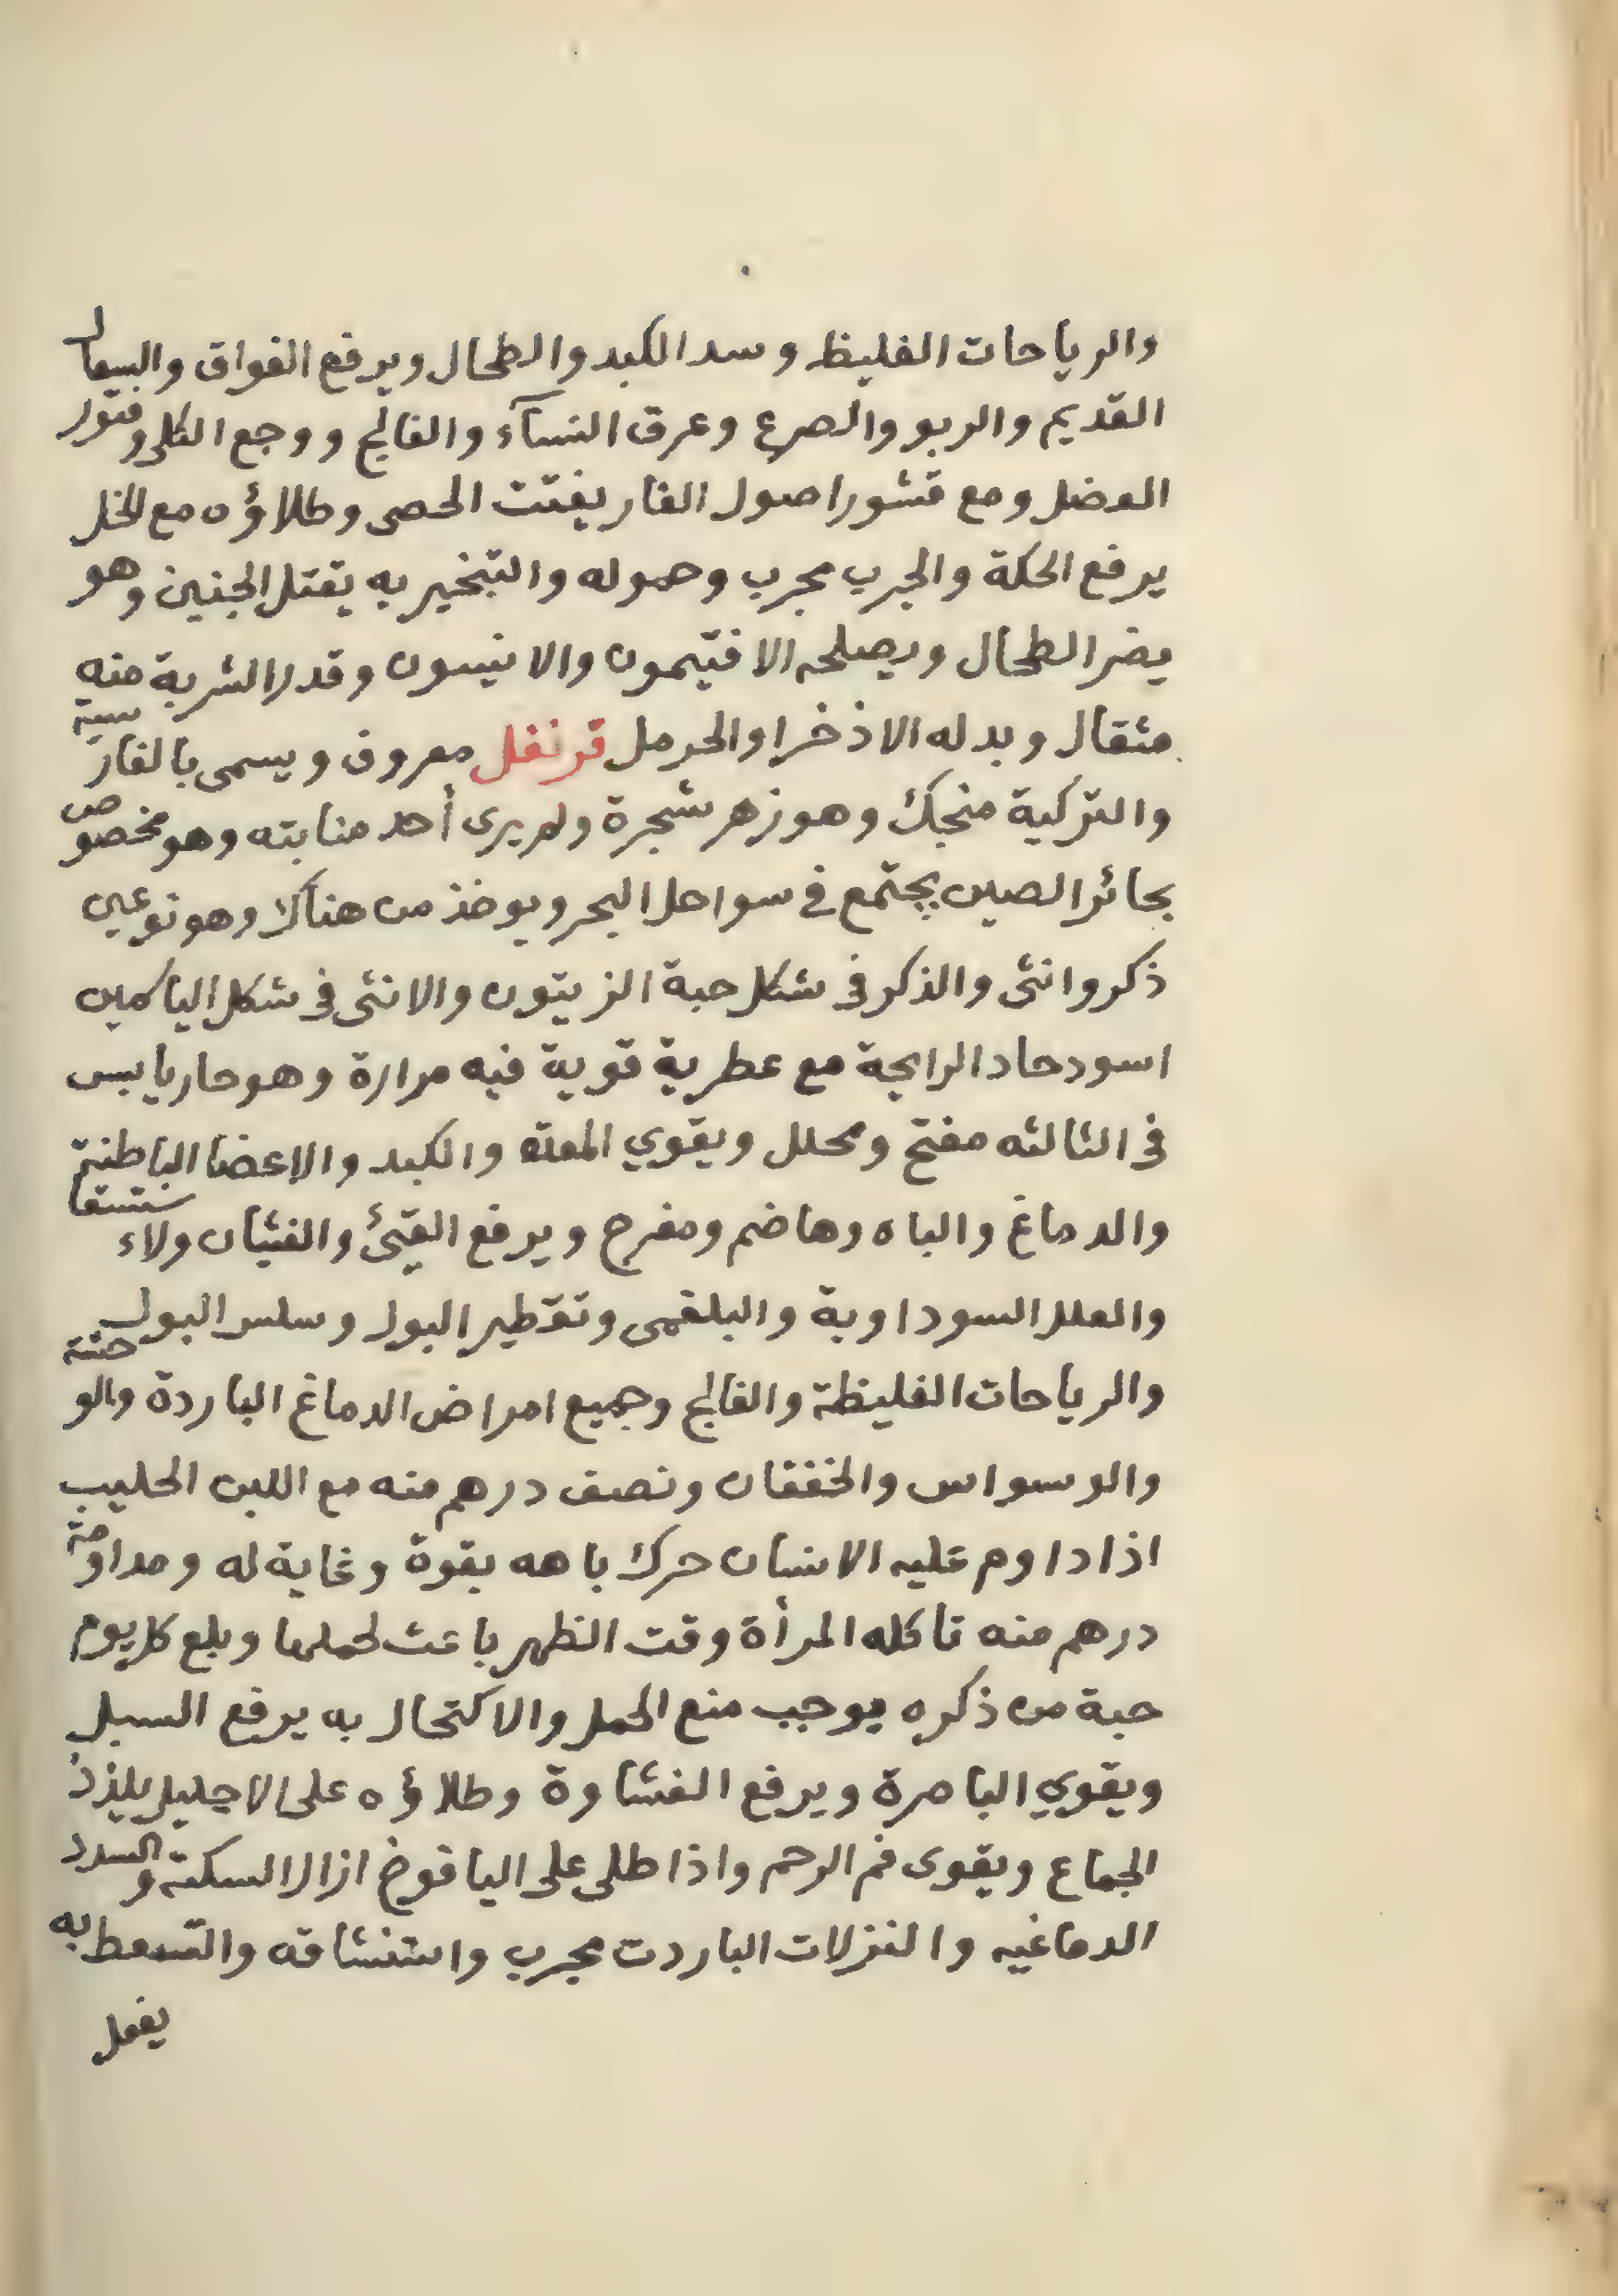 والرياحات الغليظ وسدد الكبد والطحال ويرفع الفواق والسعال
القديم والربو والصرع وعرق النسآء والفالج ووجع الكلى وفتور
العضل ومع قشور اصول الغار يفتت الحصى وطلاؤه مع الخل
يرفع الحكة والجرب مجرب وحموله والتبخير به يقتل الجنين وهو
يضر الطحال ويصلحه الافتيمون والانيسون وقدر الشربة منه
مثقال وبدله الاذخر او الحرمل قرنفل معروف ويسمى بالفارسية
والتركية منجك وهو زهر شجرة ولم يرى أحد منابته وهو مخصوص
بجائر الصين يجتمع في سواحل البحر ويوخذ من هناك وهو نوعين
ذكر وانثى والذكر في شكل حبة الزيتون والانثى في شكل الياسمين
اسود حاد الرايحة مع عطرية قوية فيه مرارة وهو حار يابس
في الثالثه مفتح ومحلل ويقوي المعدة والكبد والاعضا الباطنة
والدماغ والباه وهاضم ومفرح ويرفع القيئ والغثيان ولاءستسقا
والعلل السوداوية والبلغمى وتقطير البول وسلس البول
والرياحات الغليظة والفالج وجميع امراض الدماغ الباردة والوحشة
والوسواس والخفقان ونصف درهم منه مع اللبن الحليب
اذا داوم عليه الانسان حرك باهه بقوة وغاية له ومداومة
درهم منه تاكله المرأة وقت الطهر باعث لحملها وبلع كل يوم
حبة من ذكره يوجب منع الحمل والاكتحال به يرفع السبل
ويقوي الباصرة ويرفع الغشاوة وطلاؤه على الاحليل يلذذ
الجماع ويقوى فم الرحم واذا طلى على اليافوخ ازال السكتة والسدد
الدماغيه والنزلات الباردت مجرب واستنشاقه والتسعط به
يفعل